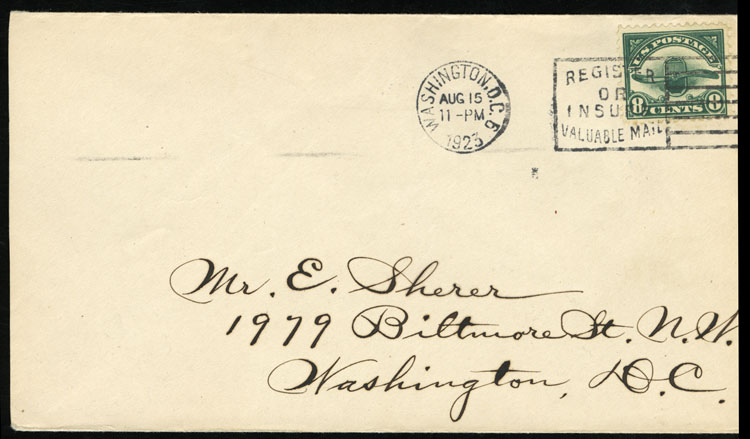 WASHINGTON, D.C. 6
AUG 15
11 -PM
1923
REGISTER
OR
INSURE
VALUABLE MAIL
U.S. POSTAGE
8 CENTS 8
Mr. E. Sherer
1979 Biltmore St. N.W.
Washington, D.C.